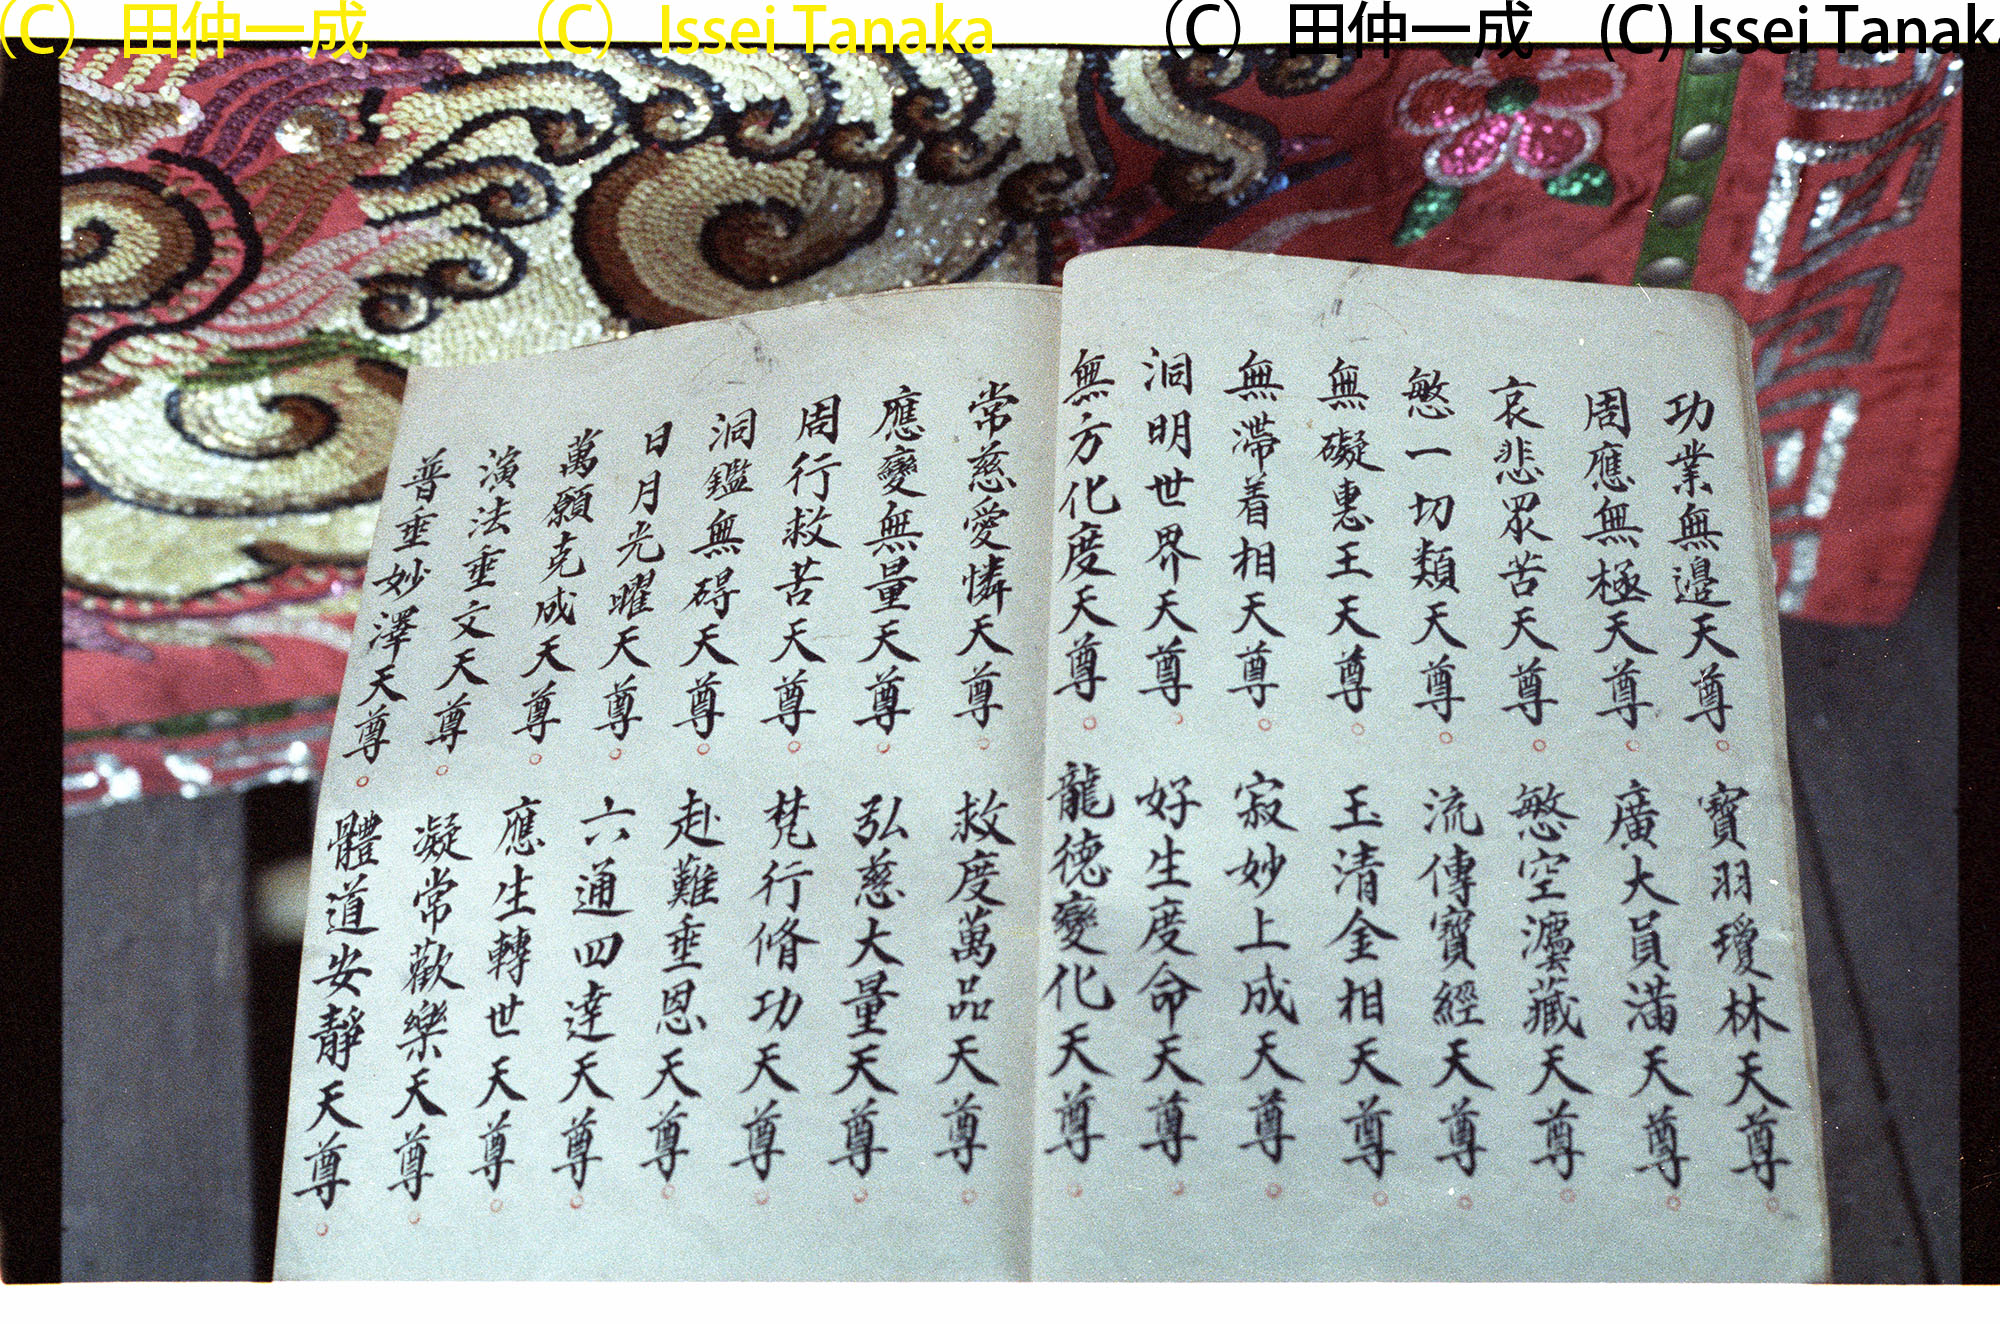 (C) 田仲一成 (C) Issei Tanaka (C) 田仲一成 (C) Issei Tanaka
功業無邊天尊。寶羽瓊林天尊。
周應無極天尊。廣大員滿天尊。
哀悲眾苦天尊。慜空灋藏天尊。
慜一切類天尊。流傳寶經天尊。
無礙惠王天尊。玉清金相天尊。
無滯着相天尊。寂妙上成天尊。
洞明世界天尊。好生度命天尊。
無方化度天尊。龍德變化天尊。
常慈愛憐天尊。救度萬品天尊。
應變無量天尊。弘慈大量天尊。
周行救苦天尊。梵行脩功天尊。
洞鑑無碍天尊。赴難垂恩天尊。
日月光曜天尊。六通四達天尊。
萬願克成天尊。應生轉世天尊。
演法垂文天尊。凝常歡樂天尊。
普垂妙澤天尊。體道安靜天尊。